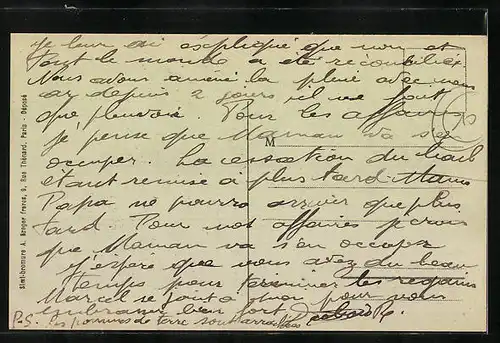 je leur ai expliqué que non et
tout le monde a été réconcilié.
Nous avons amené la pluie avec nous
car depuis 2 jours il ne fait
que pleuvoir. Pour les affaires
je pense que Maman va s'en
occuper. La cessation du bail
étant remise à plus tard
Papa ne pourra arriver que plus
tard. Pour nos affaires je crois
que Maman va s'en occuper
j'espère que vous avez du beau
temps pour terminer les regains
Marcel se joint à pour vous
embrasser bien fort
P.S. les pommes de terre sont arrachées
M
Simili-bromure A. Breger frères, 9, Rue Thénard, Paris - Déposé